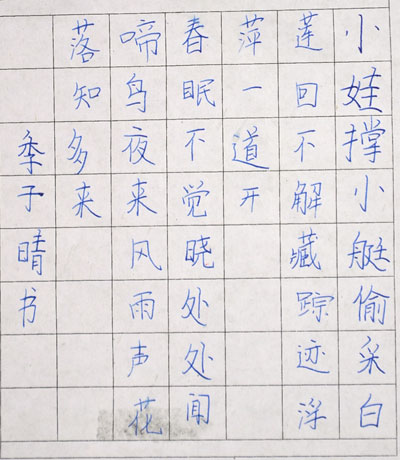 小娃撑小艇偷采白
莲回不解藏踪迹浮
萍一道开
春眠不觉晓处处闻
啼鸟夜来风雨声花
落知多来
季于晴书